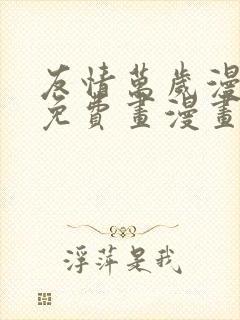 友情萬歲漫
免費畫漫畫
浮萍是我